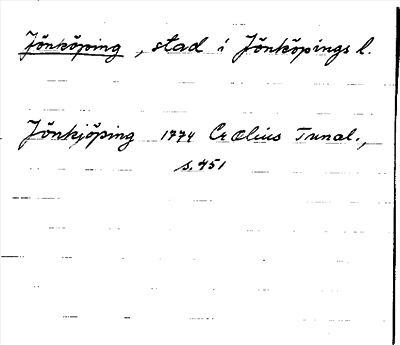 Jönköping, stad i Jönköpings l.
Jönkjöping 1774 Cr Ælius Tunal.,
s. 451